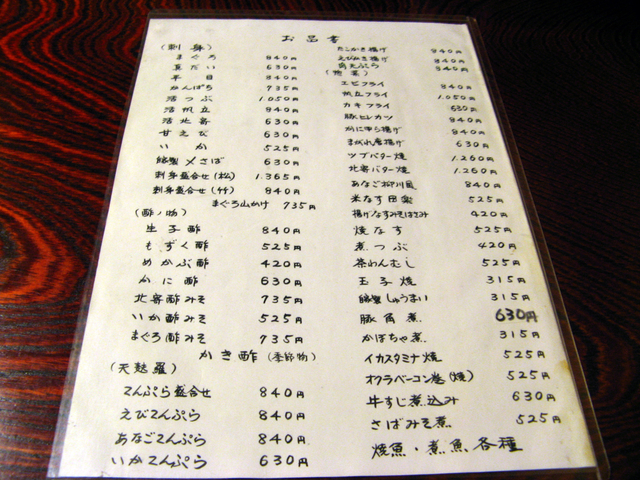 お品書
(刺身)
まぐろ 840円
真だい 630円
平目 840円
かんぱち 735円
活つぶ 1.050円
活帆立 840円
活北寄 630円
甘えび 630円
いか 525円
自家製〆さば 630円
刺身盛合せ(松) 1.365円
刺身盛合せ(竹) 840円
まぐろ山かけ 735円
(酢ノ物)
生子酢 840円
もずく酢 525円
めかぶ酢 420円
かに酢 630円
北寄酢みそ 735円
いか酢みそ 525円
まぐろ酢みそ 735円
かき酢(季節物)
(天麩羅)
てんぷら盛合せ 840円
えびてんぷら 840円
あなごてんぷら 840円
いかてんぷら 630円
たこかき揚げ 840円
えびかき揚げ 840円
天ぷら 840円
(惣菜)
エビフライ 840円
帆立フライ 1.050円
カキフライ 630円
豚ヒレカツ 840円
かに中ら揚げ 840円
まがれ唐揚げ 630円
ツブバター焼 1.260円
北寄バター焼 1.260円
あなご柳川風 840円
米なす田楽 525円
揚げなすみそはさみ 420円
焼なす 525円
煮つぶ 420円
茶わんむし 525円
玉子焼 315円
自家製しゅうまい 315円
豚角煮 630円
かぼちゃ煮 315円
イカスタミナ焼 525円
オクラベーコン巻(焼) 525円
牛すじ煮込み 630円
さばみそ煮 525円
焼魚・煮魚各種